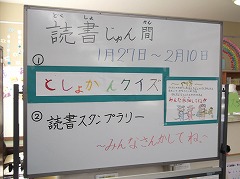 どく しょ かん
読書じゅん間
1月27日～2月10日
①
としょかんクイズ
② 読書スタンプラリー
～みんなさんかしてね～